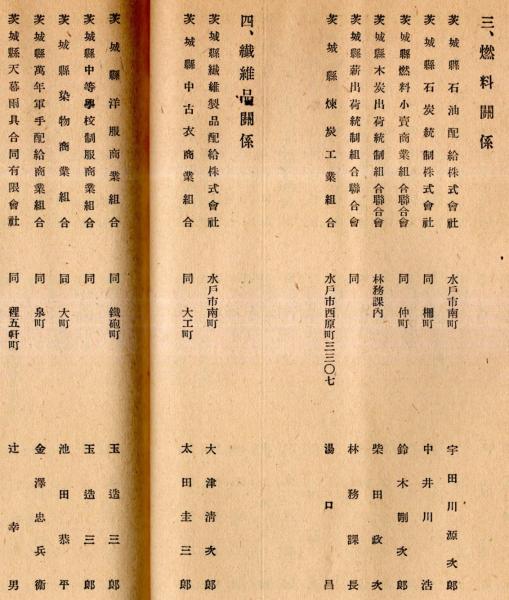 三、燃料關係
茨城縣石油配給株式會社 水戶市南町 宇田川源次郎
茨城縣石炭統制株式會社 同 柵町 中井川浩
茨城縣燃料小賣商業組合聯合會 同 仲町 鈴木剛次郎
茨城縣木炭出荷統制組合聯合會 林務課內 柴田政次
茨城縣薪出荷統制組合聯合會 同 林務課長
茨城縣煉炭工業組合 水戶市西原町三三〇七 湯口昌
四、纖維品關係
茨城縣纖維製品配給株式會社 水戶市南町 大津淸次郎
茨城縣中古衣商業組合 同 大工町 太田圭三郎
茨城縣洋服商業組合 同 鐵砲町 玉造三郎
茨城縣中等學校制服商業組合 同 玉造三郎
茨城縣染物商業組合 同 大町 池田恭平
茨城縣萬年軍手配給商業組合 同 泉町 金澤忠兵衞
茨城縣天幕雨具合同有限會社 同 裡五軒町 辻幸男